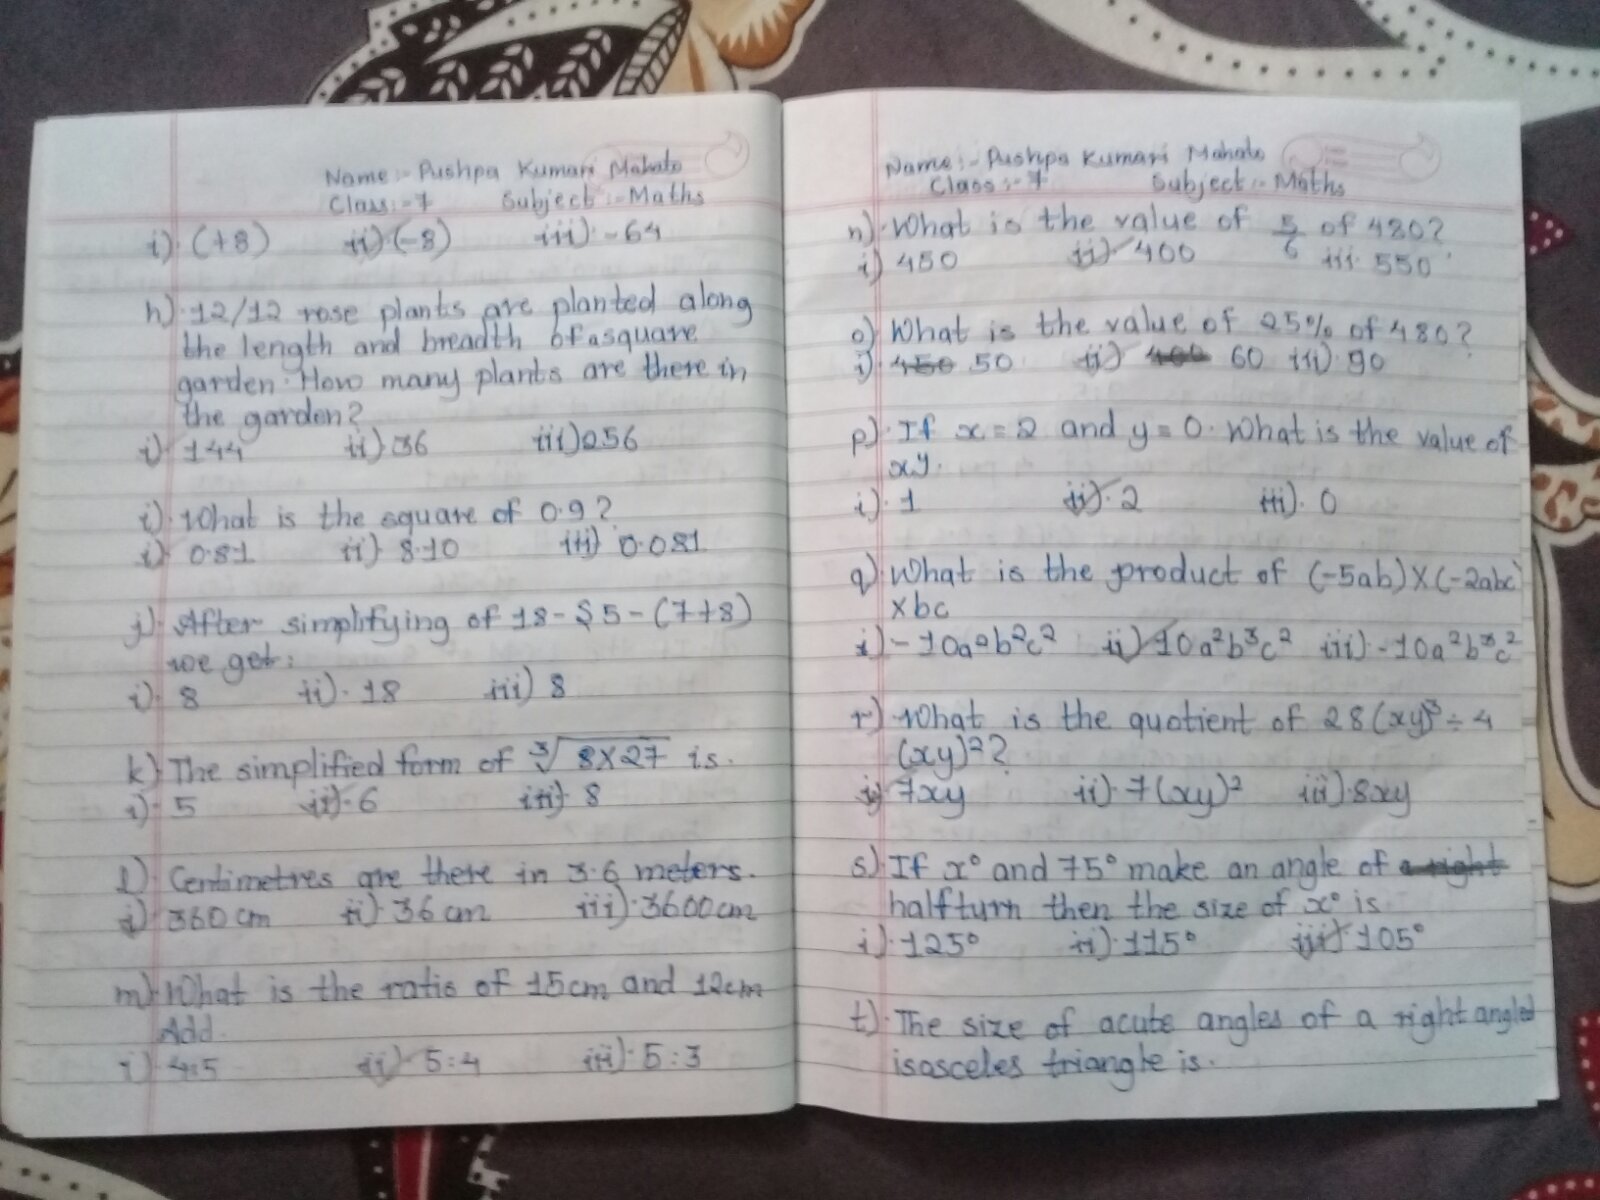 Name:- Pushpa Kumari Mahato
Class:-7 Subject:-Maths
i). (+8) ii) (-8) iii):-64
h). 12/12 rose plants are planted along
the length and breadth of a square
garden. How many plants are there in
the garden?
i) 144 ii). 36 iii) 256
i) What is the square of 0.9?
i) 0.81 ii) 8.10 iii) 0.081
j). After simplifying of 18-$5-(7+8)
we get:
i). 8 ii). 18 iii) 8
k) The simplified form of ∛8×27 is.
i). 5 ii). 6 iii). 8
l) Centimetres are there in 3.6 meters.
i) 360 cm ii). 36 cm iii). 3600cm
m) What is the ratio of 15cm and 12cm
Add.
i) 4:5 ii) 5:4 iii). 5:3
Name:- Pushpa Kumari Mahato
Class:-7 Subject:- Maths
n). What is the value of 5/6 of 480?
i) 450 ii). 400 iii. 550
o) What is the value of 25% of 480?
i) 450 50 ii) 400 60 iii) 90
p). If x=2 and y=0. What is the value of
xy.
i). 1 ii). 2 iii). 0
q) What is the product of (-5ab)×(-2abc)
×bc
i)-10a²b²c² ii) 10a²b³c² iii).-10a²b³c²
r) What is the quotient of 28(xy)³÷4
(xy)²?
i) 7xy ii). 7(xy)² iii).8xy
s) If x° and 75° make an angle of a right
halfturn then the size of x° is
i). 125° ii). 115° iii) 105°
t). The size of acute angles of a right angled
isosceles triangle is.